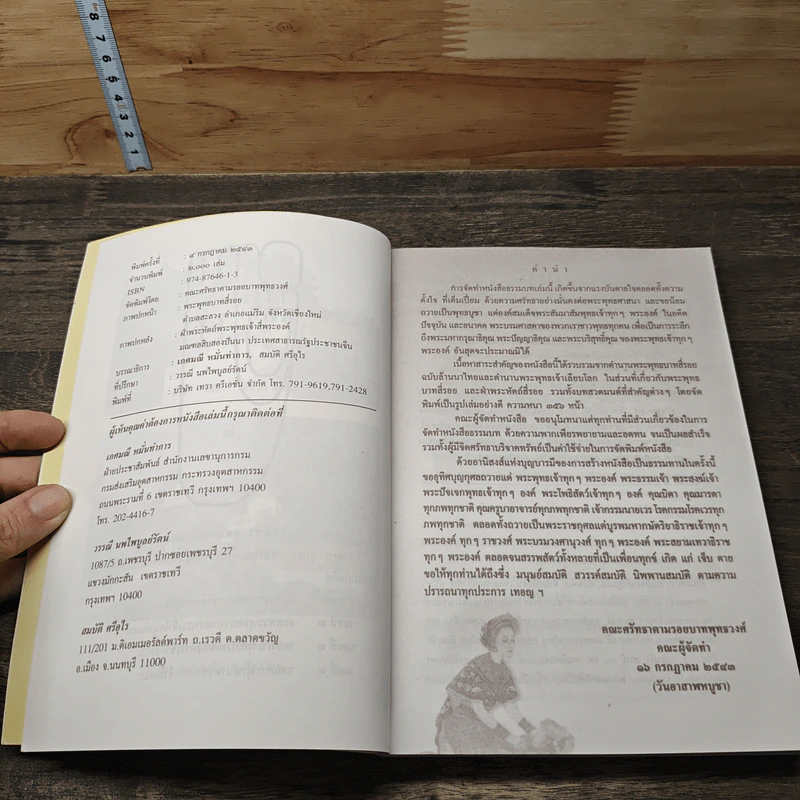 พิมพ์ครั้งที่ : ๔ กรกฎาคม ๒๕๔๓
จำนวนพิมพ์ : ๒,๐๐๐ เล่ม
ISBN : 974-87646-1-3
จัดพิมพ์โดย : คณะศรัทธาตามรอยบาทพุทธวงศ์
ภาพปกหน้า : พระพุทธบาทสี่รอย
ตำบลสะลวง อำเภอแม่ริม จังหวัดเชียงใหม่
ภาพปกหลัง : ฝ่าพระหัตถ์พระพุทธเจ้าสี่พระองค์
มณฑลสิบสองปันนา ประเทศสาธารณรัฐประชาชนจีน
บรรณาธิการ : เกศมณี หมั่นทำการ, สมบัติ ศรีอุไร
ที่ปรึกษา : วรรณี นพไพบูลย์รัตน์
พิมพ์ที่ : บริษัท เทวา ครีเอชั่น จำกัด โทร. 791-9619,791-2428
ผู้เห็นคุณค่าต้องการหนังสือเล่มนี้กรุณาติดต่อที่
เกศมณี หมั่นทำการ
ฝ่ายประชาสัมพันธ์ สำนักงานเลขานุการกรม
กรมส่งเสริมอุตสาหกรรม กระทรวงอุตสาหกรรม
ถนนพระรามที่ 6 เขตราชเทวี กรุงเทพฯ 10400
โทร. 202-4416-7
วรรณี นพไพบูลย์รัตน์
1087/5 ถ.เพชรบุรี ปากซอยเพชรบุรี 27
แขวงมักกะสัน เขตราชเทวี
กรุงเทพฯ 10400
สมบัติ ศรีอุไร
111/201 ม.ดิเอมเมอรัลด์พาร์ท ถ.เรวดี ต.ตลาดขวัญ
อ.เมือง จ.นนทบุรี 11000
คำนำ
การจัดทำหนังสือธรรมบทเล่มนี้ เกิดขึ้นจากแรงบันดาลใจตลอดทั้งความ
ตั้งใจ ที่เต็มเปี่ยม ด้วยความศรัทธาอย่างมั่นคงต่อพระพุทธศาสนา และขอน้อม
ถวายเป็นพุทธบูชา แด่องค์สมเด็จพระสัมมาสัมพุทธเจ้าทุก ๆ พระองค์ ในอดีต
ปัจจุบัน และอนาคต พระบรมศาสดาของพวกเราชาวพุทธทุกคน เพื่อเป็นการระลึก
ถึงพระมหากรุณาธิคุณ พระปัญญาธิคุณ และพระบริสุทธิ์คุณ ของพระพุทธเจ้าทุก ๆ
พระองค์ อันสุดจะประมาณมิได้
เนื้อหาสาระสำคัญของหนังสือนี้ได้รวบรวมจากตำนานพระพุทธบาทสี่รอย
ฉบับล้านนาไทยและตำนานพระพุทธเจ้าเลียบโลก ในส่วนที่เกี่ยวกับพระพุทธ
บาทสี่รอย และฝ่าพระหัตถ์สี่รอย รวมทั้งบทสวดมนต์ที่สำคัญต่าง ๆ โดยจัด
พิมพ์เป็นรูปเล่มอย่างดี ความหนา ๓๕๖ หน้า
คณะผู้จัดทำหนังสือ ขออนุโมทนาแด่ทุกท่านที่มีส่วนเกี่ยวข้องในการ
จัดทำหนังสือธรรมบท ด้วยความพากเพียรพยายามและอดทน จนเป็นผลสำเร็จ
รวมทั้งผู้มีจิตศรัทธาบริจาคทรัพย์เป็นค่าใช้จ่ายในการจัดพิมพ์หนังสือ
ด้วยอานิสงส์แห่งบุญบารมีของการสร้างหนังสือเป็นธรรมทานในครั้งนี้
ขออุทิศบุญกุศลถวายแด่ พระพุทธเจ้าทุก ๆ พระองค์ พระธรรมเจ้า พระสงฆ์เจ้า
พระปัจเจกพุทธเจ้าทุก ๆ องค์ พระโพธิสัตว์เจ้าทุก ๆ องค์ คุณบิดา คุณมารดา
ทุกภพทุกชาติ คุณครูบาอาจารย์ทุกภพทุกชาติ เจ้ากรรมนายเวร โรคกรรมโรคเวรทุก
ภพทุกชาติ ตลอดทั้งถวายเป็นพระราชกุศลแด่บูรพมหากษัตริยาธิราชเจ้าทุก ๆ
พระองค์ ทุก ๆ ราชวงศ์ พระบรมวงศานุวงศ์ ทุก ๆ พระองค์ พระสยามเทวาธิราช
ทุก ๆ พระองค์ ตลอดจนสรรพสัตว์ทั้งหลายที่เป็นเพื่อนทุกข์ เกิด แก่ เจ็บ ตาย
ขอให้ทุกท่านได้ถึงซึ่ง มนุษย์สมบัติ สวรรค์สมบัติ นิพพานสมบัติ ตามความ
ปรารถนาทุกประการ เทอญ ฯ
คณะศรัทธาตามรอยบาทพุทธวงศ์
คณะผู้จัดทำ
๑๖ กรกฎาคม ๒๕๔๓
(วันอาสาฬหบูชา)